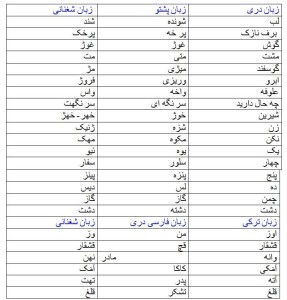 زبان دری زبان پشتو زبان شغنانی
لب شونده شند
برف نازک پر خه پرخک
گوش غوژ غوژ
مشت مټی مت
گوسفند میژی مژ
ابرو وریزی فروژ
علوفه واخه واس
چه حال دارید سر نگه ای سر نگهت
شیرین خوژ خهر - خهژ
زن شزه ژنیک
نکن مکوه مهک
یک یوه نیو
چهار سلور سفار
پنج پنزه پینز
ده لس دیس
چمن گاز گاز
دشت دشته دشت
زبان ترکی زبان فارسی دری زبان شغنانی
اوز من وز
قشقار قچ قشقار
وانه مادر نهن
امکی کاکا امک
آته پدر تهت
قلغ تشکر قلغ